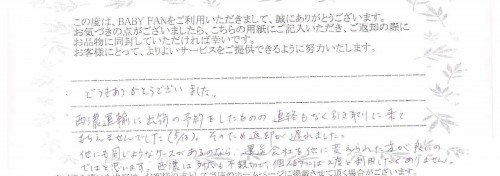 この度は、BABY FANをご利用いただきまして、誠にありがとうございます。
お気づきの点がございましたら、こちらの用紙にご記入いただき、ご返却の際に
お品物に同封していただければ幸いです。
お客様にとって、よりよいサービスをご提供できるように努力いたします。
どうもありがとうございました。
西濃運輸に出荷の予約をしたものの連絡もなく引き取りに来て
もらえませんでした(5/10)。そのため返却が遅れました。
他にも同じようなケースがあるのなら、運送会社を他に変えられた方が良いの
ではと思います。西濃は 個人的には2度と利用したくありません。
ホームページに掲載させて頂く場合がございます。